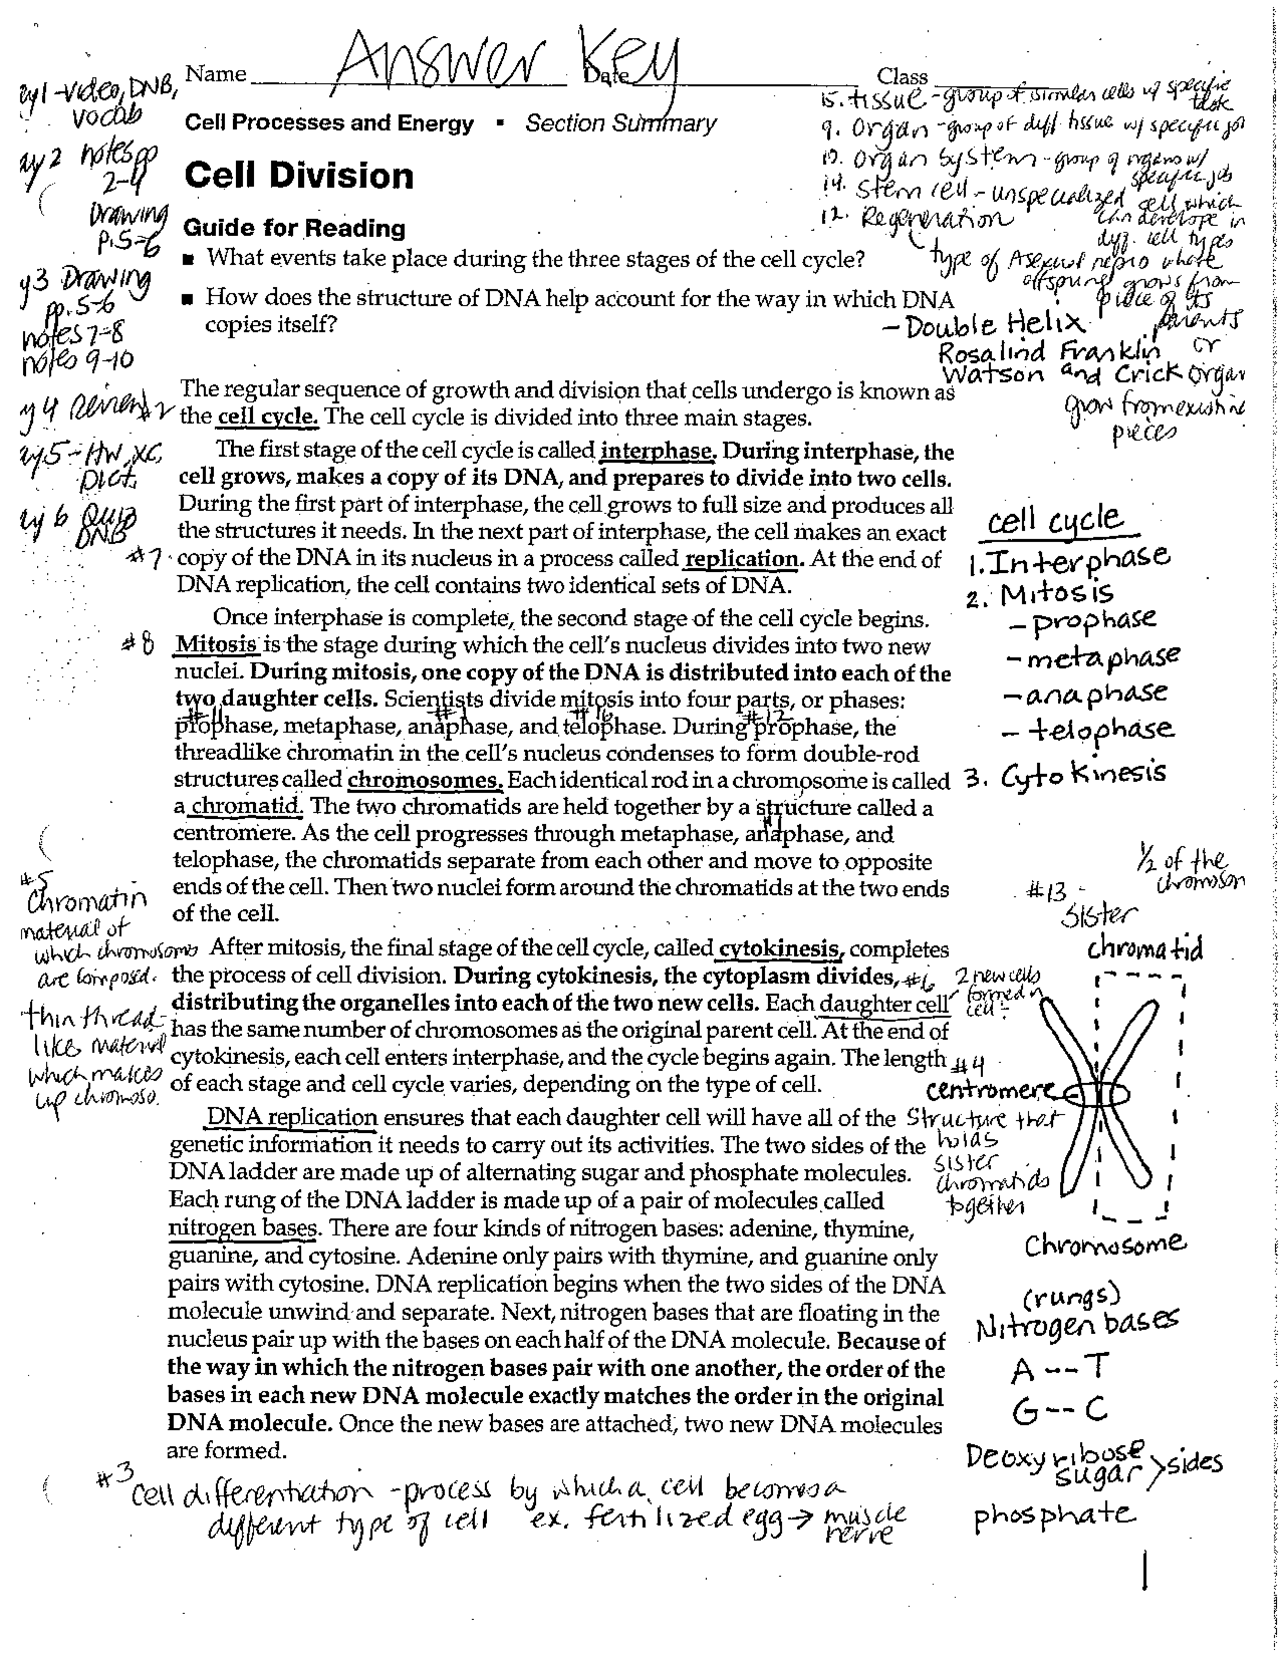 Answer Key
Name Date Class
Cell Processes and Energy ▪ Section Summary
Cell Division
Guide for Reading
▪ What events take place during the three stages of the cell cycle?
▪ How does the structure of DNA help account for the way in which DNA
copies itself?
The regular sequence of growth and division that cells undergo is known as
the cell cycle. The cell cycle is divided into three main stages.
The first stage of the cell cycle is called interphase. During interphase, the
cell grows, makes a copy of its DNA, and prepares to divide into two cells.
During the first part of interphase, the cell grows to full size and produces all
the structures it needs. In the next part of interphase, the cell makes an exact
copy of the DNA in its nucleus in a process called replication. At the end of
DNA replication, the cell contains two identical sets of DNA.
Once interphase is complete, the second stage of the cell cycle begins.
Mitosis is the stage during which the cell's nucleus divides into two new
nuclei. During mitosis, one copy of the DNA is distributed into each of the
two daughter cells. Scientists divide mitosis into four parts, or phases:
prophase, metaphase, anaphase, and telophase. During prophase, the
threadlike chromatin in the cell's nucleus condenses to form double-rod
structures called chromosomes. Each identical rod in a chromosome is called
a chromatid. The two chromatids are held together by a structure called a
centromere. As the cell progresses through metaphase, anaphase, and
telophase, the chromatids separate from each other and move to opposite
ends of the cell. Then two nuclei form around the chromatids at the two ends
of the cell.
After mitosis, the final stage of the cell cycle, called cytokinesis, completes
the process of cell division. During cytokinesis, the cytoplasm divides,
distributing the organelles into each of the two new cells. Each daughter cell
has the same number of chromosomes as the original parent cell. At the end of
cytokinesis, each cell enters interphase, and the cycle begins again. The length
of each stage and cell cycle varies, depending on the type of cell.
DNA replication ensures that each daughter cell will have all of the
genetic information it needs to carry out its activities. The two sides of the
DNA ladder are made up of alternating sugar and phosphate molecules.
Each rung of the DNA ladder is made up of a pair of molecules called
nitrogen bases. There are four kinds of nitrogen bases: adenine, thymine,
guanine, and cytosine. Adenine only pairs with thymine, and guanine only
pairs with cytosine. DNA replication begins when the two sides of the DNA
molecule unwind and separate. Next, nitrogen bases that are floating in the
nucleus pair up with the bases on each half of the DNA molecule. Because of
the way in which the nitrogen bases pair with one another, the order of the
bases in each new DNA molecule exactly matches the order in the original
DNA molecule. Once the new bases are attached, two new DNA molecules
are formed.
#3
cell differentiation - process by which a cell becomes a
different type of cell ex. fertilized egg → muscle
nerve
video, DNB,
vocab
notes pp
2-4
Drawing
p. 5-6
Drawing
pp. 5-6
notes 7-8
notes 9-10
HW, XC,
Quiz
DNB
#7
#8
#5
Chromatin
material of
which chromosoms
are composed.
thin thread-
like material
which makes
up chromoso.
15. tissue - group of similar cells w/ specific
task
9. Organ - group of diff tissue w/ specific job
Organ System - group of organs w/
specific job
14. Stem cell - unspecialized cell which
can develope in
cell types
12. Regeneration
type of Asexual repro where
offspring grows from
piece of its
parents
or
organ
grow from existing
pieces
- Double Helix
Rosalind Franklin
Watson and Crick
cell cycle
1. Interphase
2. Mitosis
- prophase
- metaphase
- anaphase
- telophase
3. Cytokinesis
#13 -
sister
chromatid
1/2 of the
chromosom
#6 2 new cells
formed in
cell
#4
centromere
structure that
holds
sister
chromatids
together
Chromosome
(rungs)
Nitrogen bases
A -- T
G -- C
Deoxyribose
sugar > sides
phosphate
1